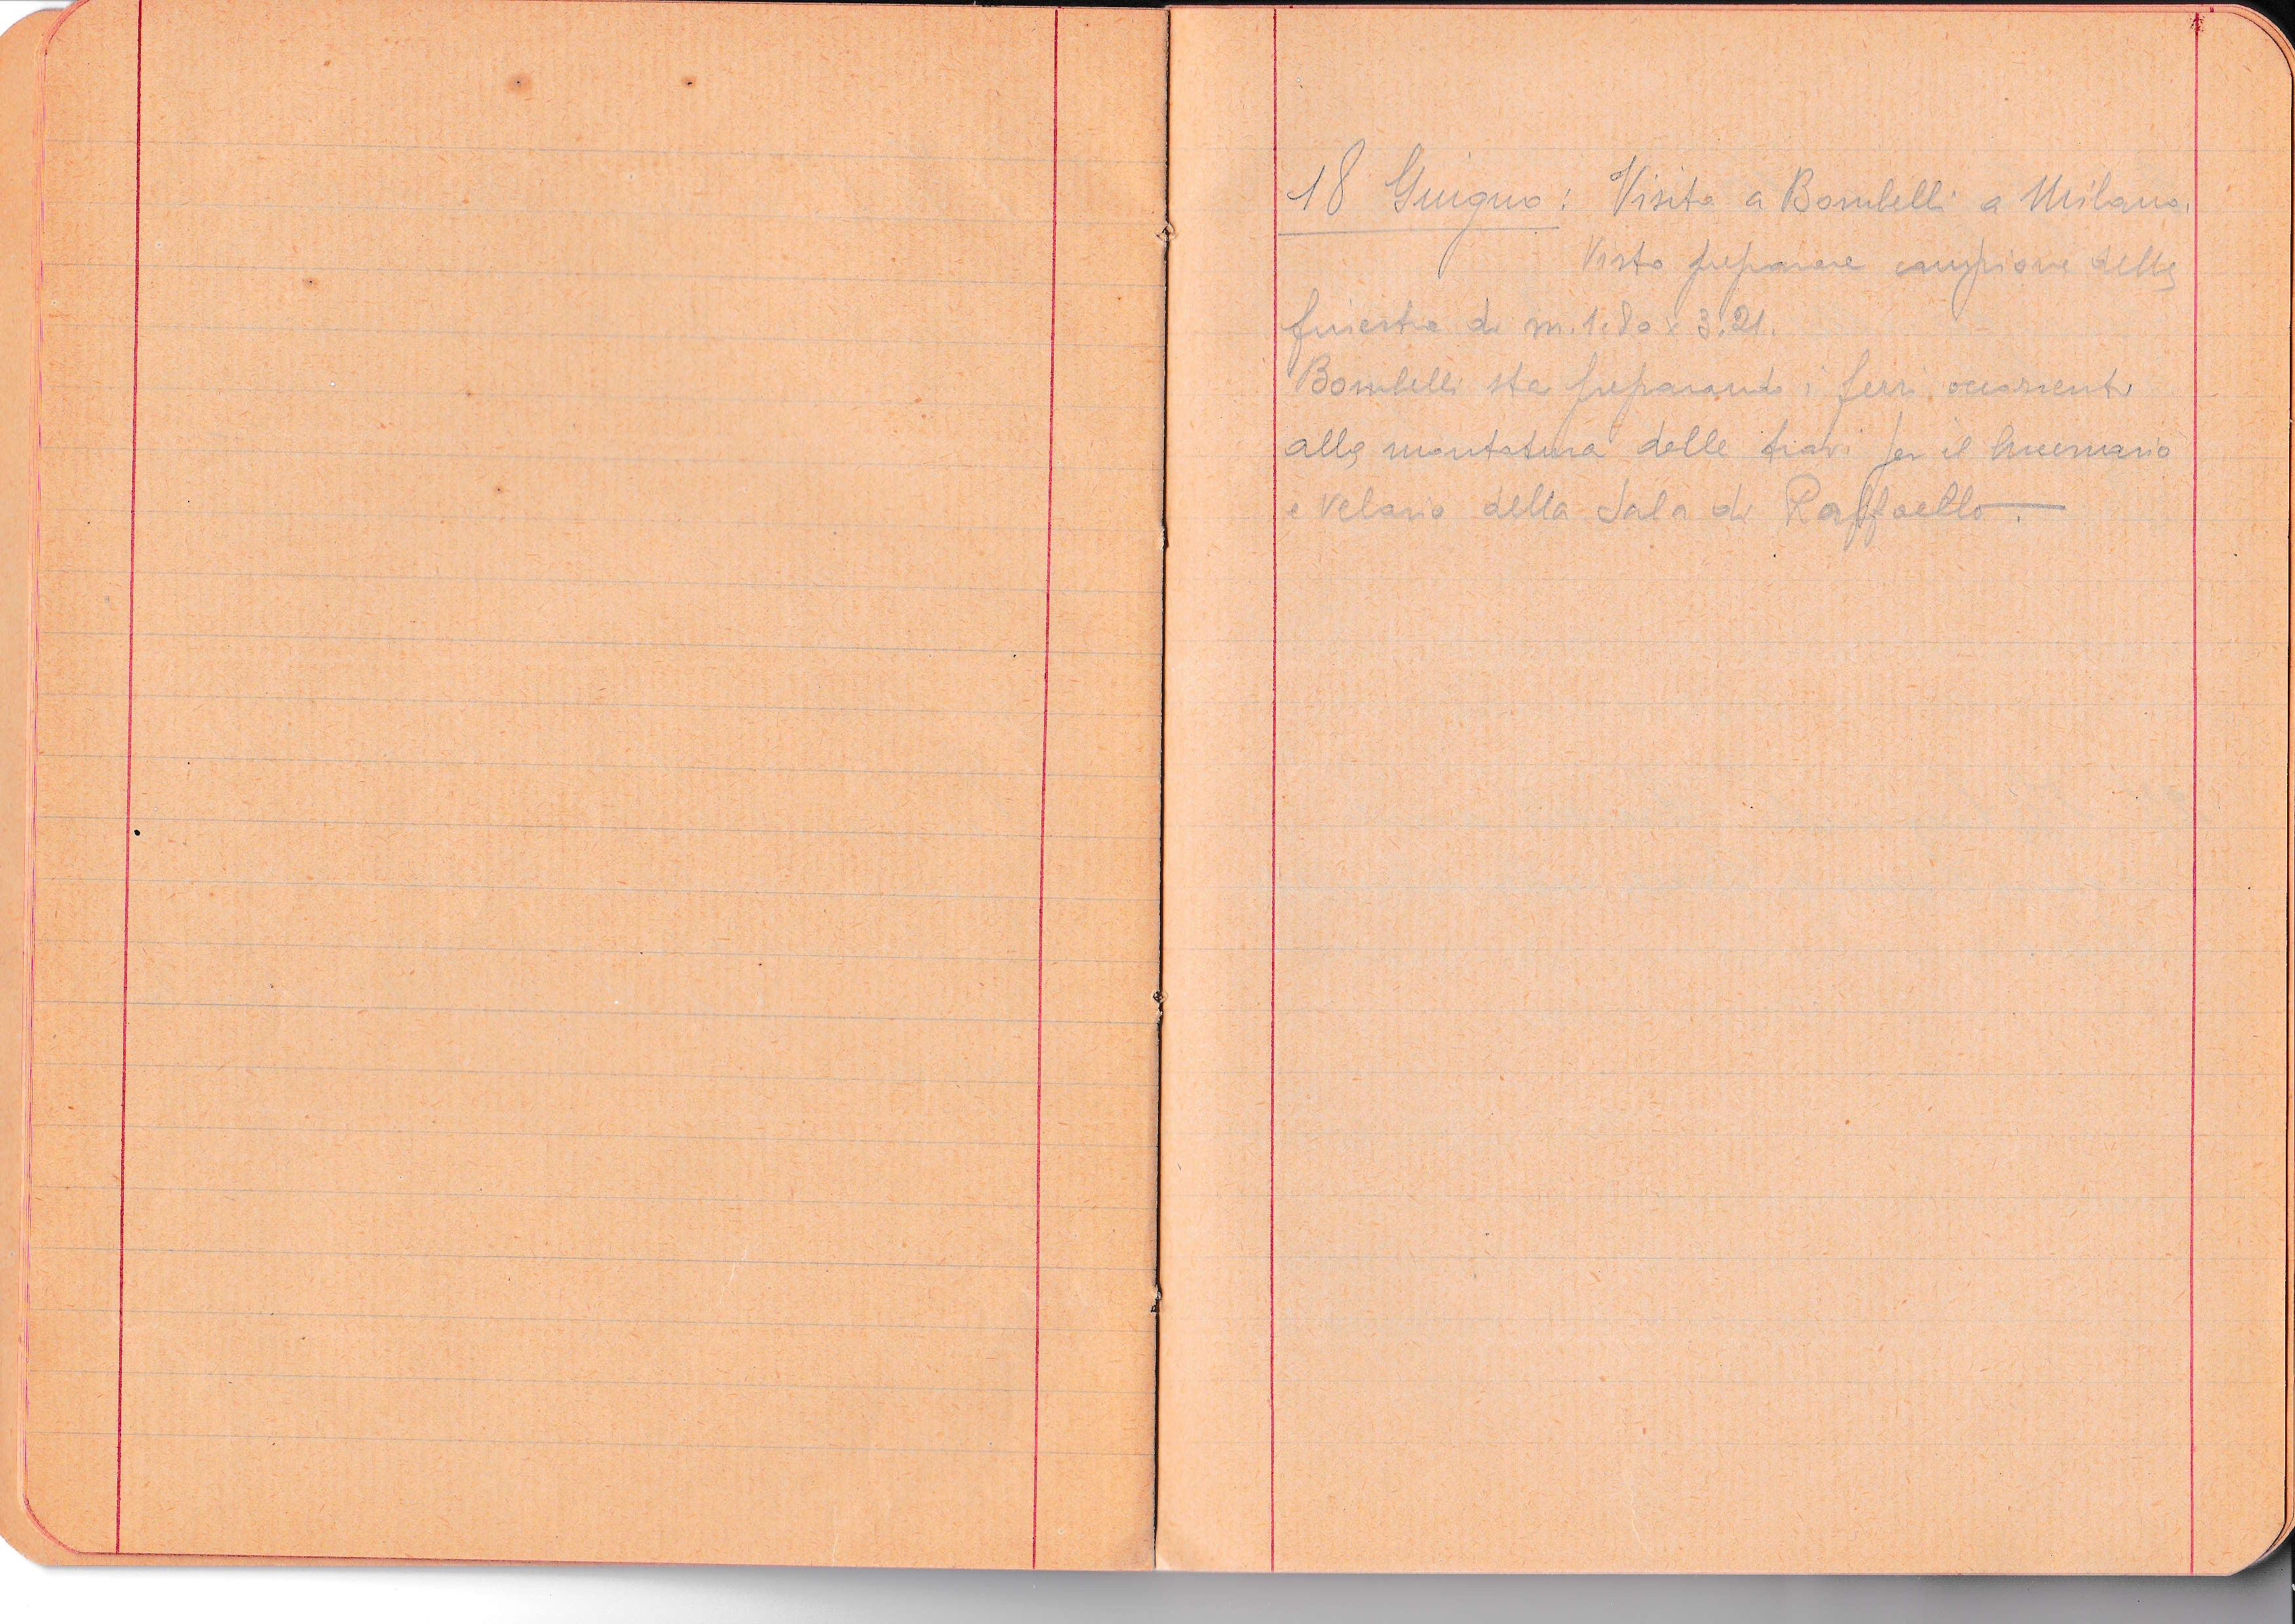 18 Giugno: Visita a Bombelli a Milano.
Visto preparare campione della
finestra di m. 1.80 x 3.21.
Bombelli sta preparando i ferri occorrenti
alla montatura delle travi per il lucernario
e velario della Sala di Raffaello.